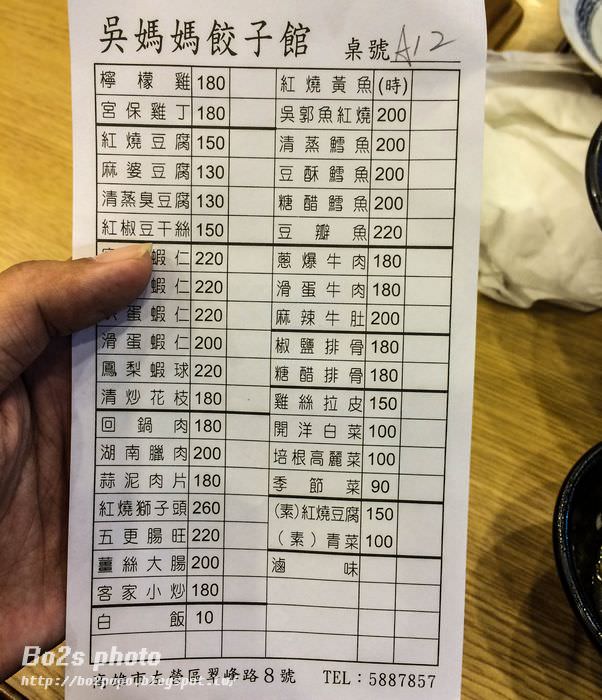 吳媽媽餃子館 桌號 A12
檸檬雞 180
宮保雞丁 180
紅燒豆腐 150
麻婆豆腐 130
清蒸臭豆腐 130
紅椒豆干絲 150
蝦仁 220
蝦仁 220
蛋蝦仁 220
滑蛋蝦仁 200
鳳梨蝦球 220
清炒花枝 180
回鍋肉 180
湖南臘肉 200
蒜泥肉片 180
紅燒獅子頭 260
五更腸旺 220
薑絲大腸 200
客家小炒 180
白飯 10
紅燒黃魚 (時)
吳郭魚紅燒 200
清蒸鱈魚 200
豆酥鱈魚 200
糖醋鱈魚 200
豆瓣魚 220
蔥爆牛肉 180
滑蛋牛肉 180
麻辣牛肚 200
椒鹽排骨 180
糖醋排骨 180
雞絲拉皮 150
開洋白菜 100
培根高麗菜 100
季節菜 90
(素)紅燒豆腐 150
(素)青菜 100
滷味
高雄市左營區翠峰路8號 TEL:5887857
Bo2s photo